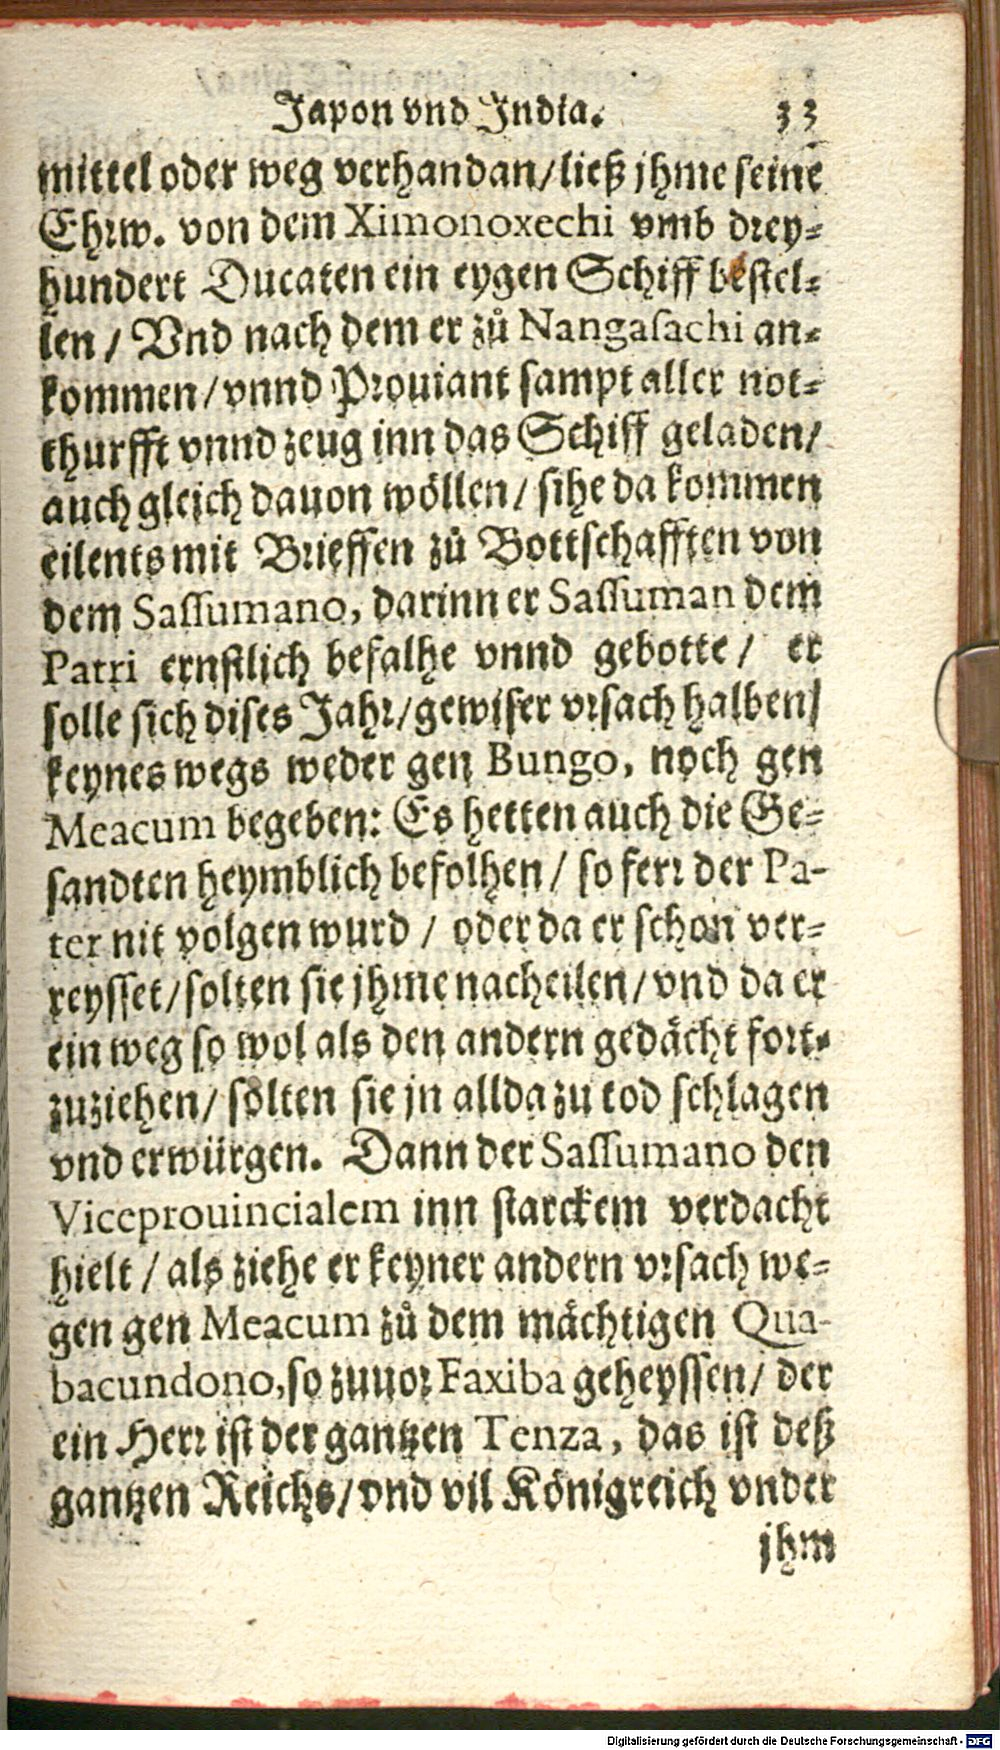 Japon vnd India. 33
mittel oder weg verhandan/ließ jhme seine
Ehrw. von dem Ximonoxechi vmb drey⸗
hundert Ducaten ein eygen Schiff bestel⸗
len / Vnd nach dem er zů Nangasachi an⸗
kommen/vnnd Prouiant sampt aller not⸗
thurfft vnnd zeug inn das Schiff geladen/
auch gleich dauon wöllen/ sihe da kommen
eilents mit Brieffen zů Bottschafften von
dem Sassumano, darinn er Sassuman dem
Patri ernstlich befalhe vnnd gebotte/ er
solle sich dises Jahr/gewiser vrsach halben/
keynes wegs weder gen Bungo, noch gen
Meacum begeben: Es hetten auch die Ge⸗
sandten heymblich befolhen / so ferr der Pa-
ter nit volgen wurd / oder da er schon ver⸗
reysset/solten sie jhme nacheilen/vnd da er
ein weg so wol als den andern gedächt fort⸗
zuziehen/ solten sie jn allda zu tod schlagen
vnd erwürgen. Dann der Sassumano den
Viceprouincialem inn starckem verdacht
hielt / als ziehe er keyner andern vrsach we⸗
gen gen Meacum zů dem mächtigen Qua-
bacundono, so zuuor Faxiba geheyssen/ der
ein Herr ist der gantzen Tenza, das ist deß
gantzen Reichs/vnd vil Königreich vnder
jhm
Digitalisierung gefördert durch die Deutsche Forschungsgemeinschaft - DFG